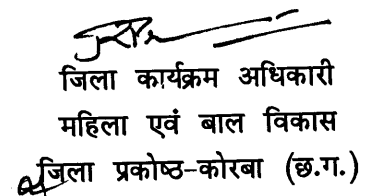 जिला कार्यक्रम अधिकारी
महिला एवं बाल विकास
जिला प्रकोष्ठ-कोरबा (छ.ग.)